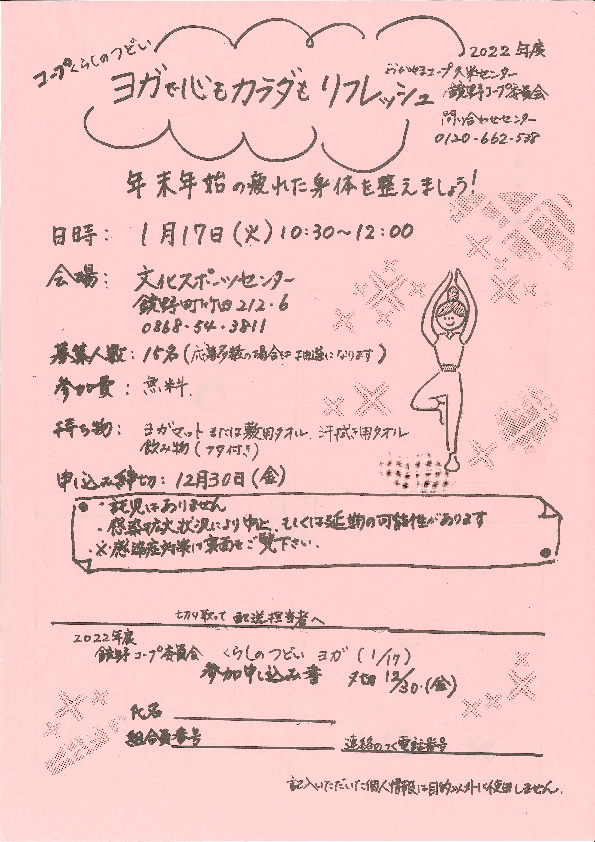 コープくらしのつどい
2022年度
ヨガで心もカラダも リフレッシュ
おかやまコープ 久米センター
鏡野コープ委員会
問い合わせセンター
0120-662-538
年末年始の疲れた身体を整えましょう!
日時: 1月17日(火)10:30〜12:00
会場: 文化スポーツセンター
鏡野町竹田212-6
0868-54-3811
募集人数:15名(応募多数の場合は抽選になります)
参加費: 無料.
持ち物: ヨガマットまたは敷用タオル、汗拭き用タオル
飲み物(フタ付き)
申し込み締切:12月30日(金)
・託児はありません
・感染拡大状況により中止、もしくは延期の可能性があります
・※感染症対策は裏面をご覧下さい.
切り取って 配送担当者へ
2022年度
鏡野コープ委員会 くらしのつどい ヨガ (1/17)
参加申し込み書 〆切 12/30.(金)
氏名
組合員番号 連絡のつく電話番号
記入いただいた個人情報は目的以外に使用しません.